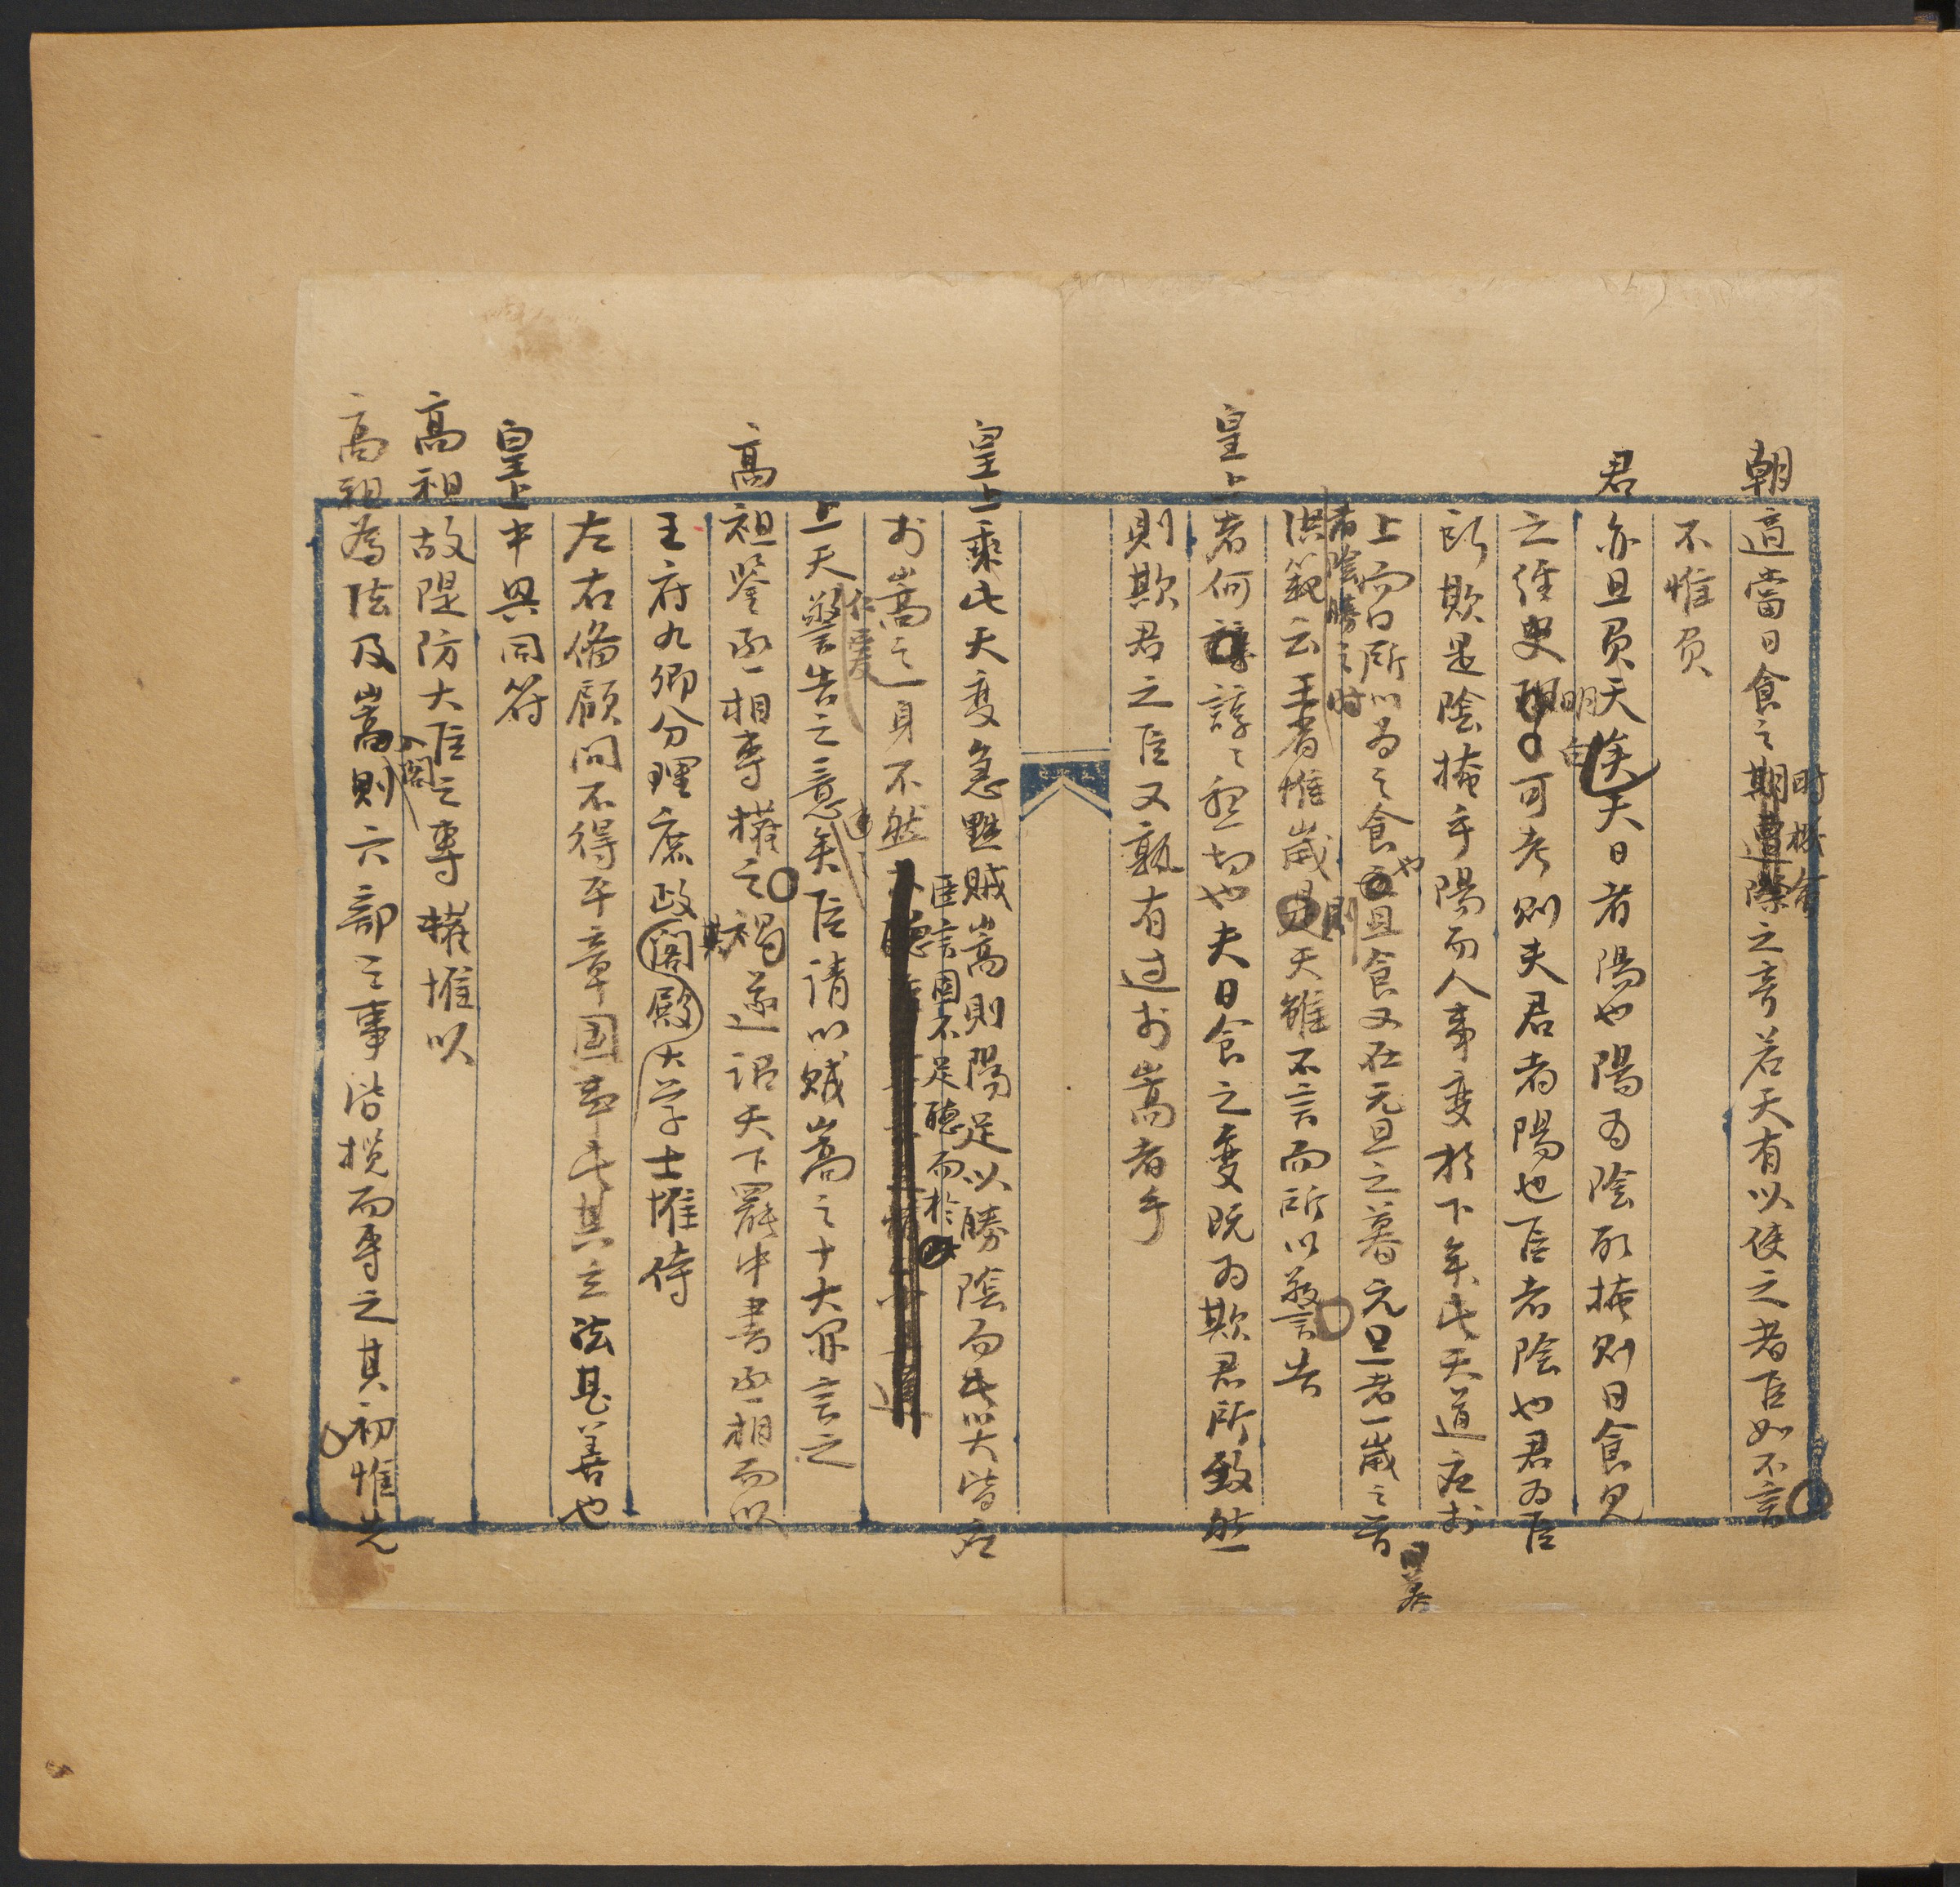 朝適當日食之期遭際之奇若天有以使之者臣如不言
時機會
不惟負
君亦且負天矣夫日者陽也陽為陰所掩則日食見
之經史明可考則夫君者陽也臣者陰也君為臣
明白
所欺是陰掩乎陽而人事變於下矣此天道應於
上而日所以為之食且食又在元旦之暮元旦者一歲之首
也
日暮
者陰勝之時
洪範云王者惟歲是天雖不言而所以警告
則
皇上者何諄諄之懇切也夫日食之變既為欺君所致然
則欺君之臣又孰有過於嵩者乎
皇上乘此天變急黜賊嵩則陽足以勝陰而此災皆應
於嵩之一身不然
臣言固不足聽而於
上天警告之意矣臣請以賊嵩之十大罪言之
仁愛
高祖鑒丞相專權之禍遂詔天下罷中書丞相而以
其
王府九卿分理庶政閣殿大学士惟侍
左右俻顧問不得平章國事此其立法甚善也
皇上中興同符
高祖故隄防大臣之專權惟以
高祖為法及嵩則六部之事皆攬而專之其初惟先
入閣